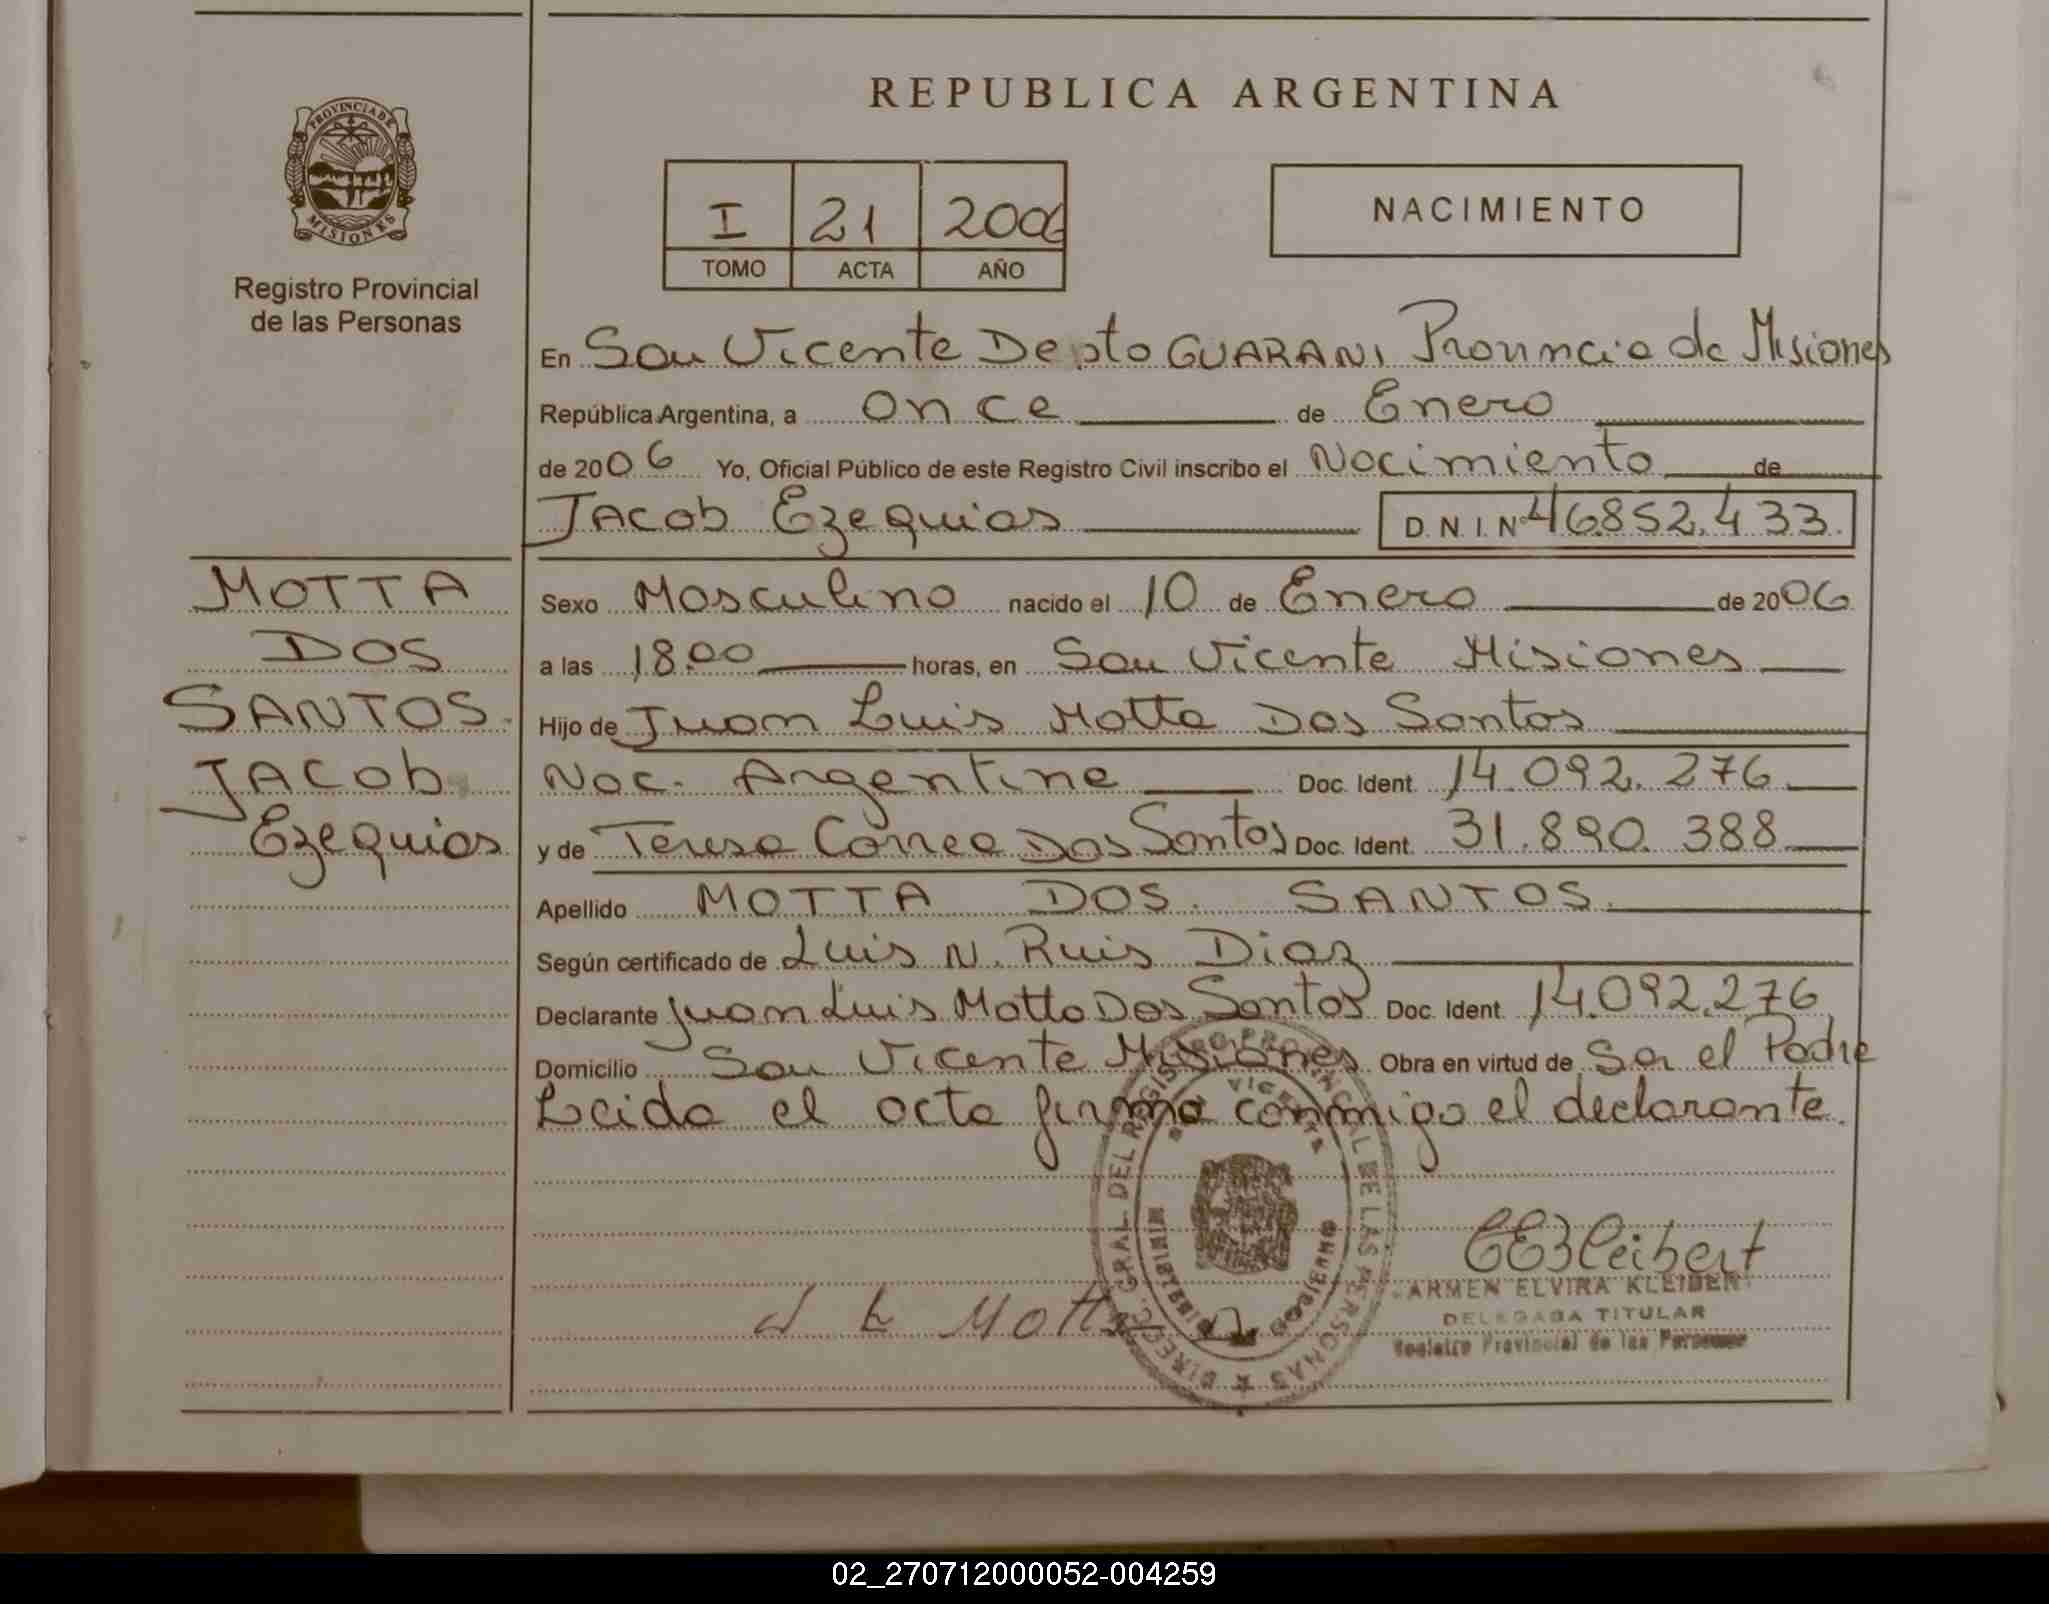 REPUBLICA ARGENTINA
PROVINCIA DE
MISIONES
Registro Provincial
de las Personas
I 21 2006
TOMO ACTA AÑO
NACIMIENTO
En San Vicente Depto GUARANI Provincia de Misiones
República Argentina, a once de Enero
de 2006 Yo, Oficial Público de este Registro Civil inscribo el Nacimiento de
Jacob Ezequias D.N.I.Nº 46.852.433.
MOTTA
DOS
SANTOS.
Jacob
Ezequias
Sexo Masculino nacido el 10 de Enero de 2006
a las 18.00 horas, en San Vicente Misiones
Hijo de Juan Luis Motta Dos Santos
Nac. Argentina Doc. Ident. 14.092.276
y de Teresa Correa Dos Santos Doc. Ident. 31.890.388
Apellido MOTTA DOS SANTOS.
Según certificado de Luis N. Ruis Diaz
Declarante Juan Luis Motta Dos Santos Doc. Ident. 14.092.276
Domicilio San Vicente Misiones Obra en virtud de Ser el Padre
Leida el acta firma conmigo el declarante.
DIREC. GRAL DEL REGISTRO PROVINCIAL DE LAS PERSONAS
VICENTE
MISIONES
J L Motta
CEKleibert
CARMEN ELVIRA KLEIBERT
DELEGADA TITULAR
Registro Provincial de las Personas
02_270712000052-004259